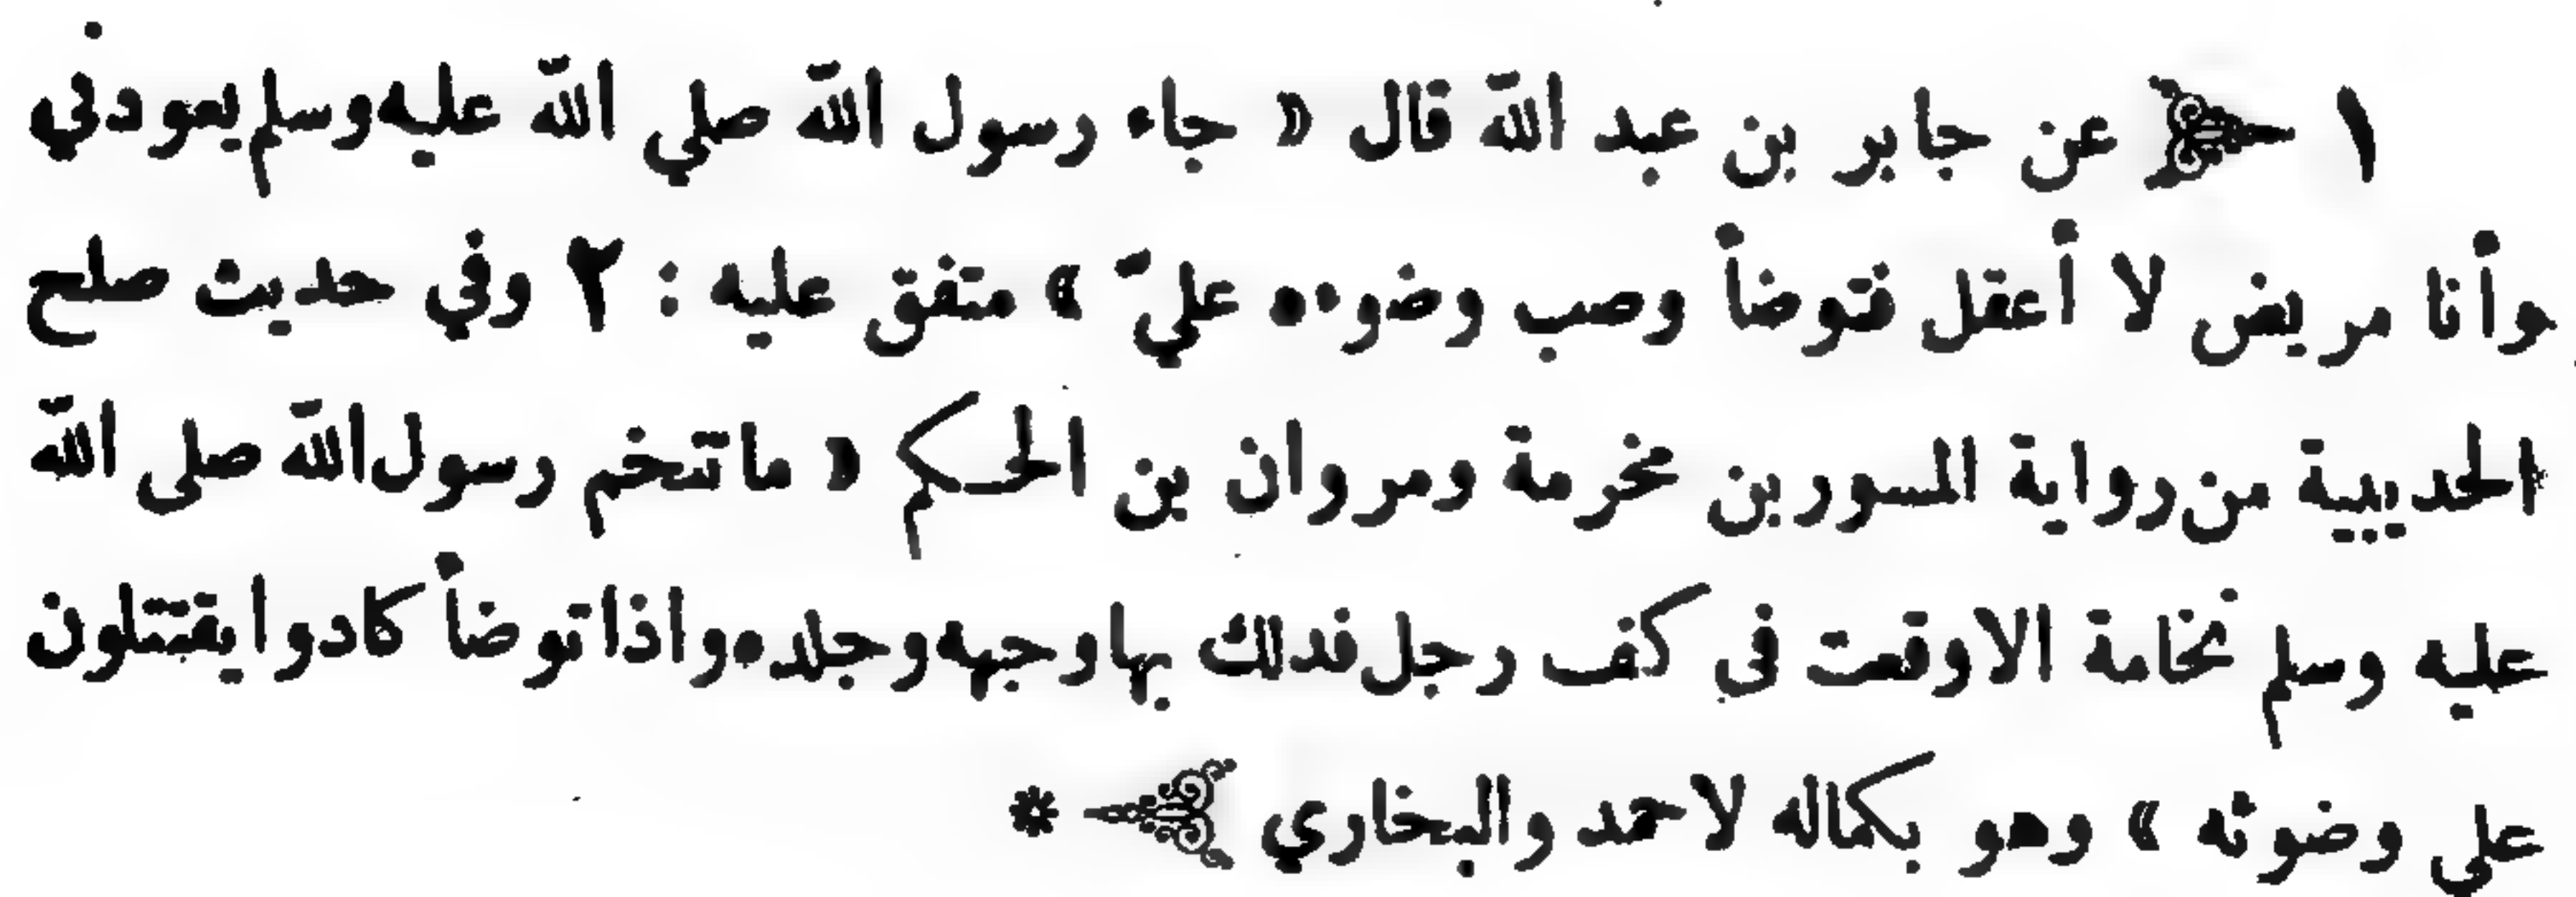 ١ عن جابر بن عبد الله قال « جاء رسول الله صلي الله عليه وسلم يعودني
وأنا مريض لا أعقل فتوضأ وصب وضوءه عليّ » متفق عليه : ٢ وفي حديث صلح
الحديبية من رواية المسور بن مخرمة ومروان بن الحكم « ماتنخم رسول الله صلى الله
عليه وسلم نخامة الا وقعت في كف رجل فدلك بها وجهه وجلده واذا توضأ كادوا يقتتلون
علي وضوئه » وهو بكماله لاحمد والبخاري *